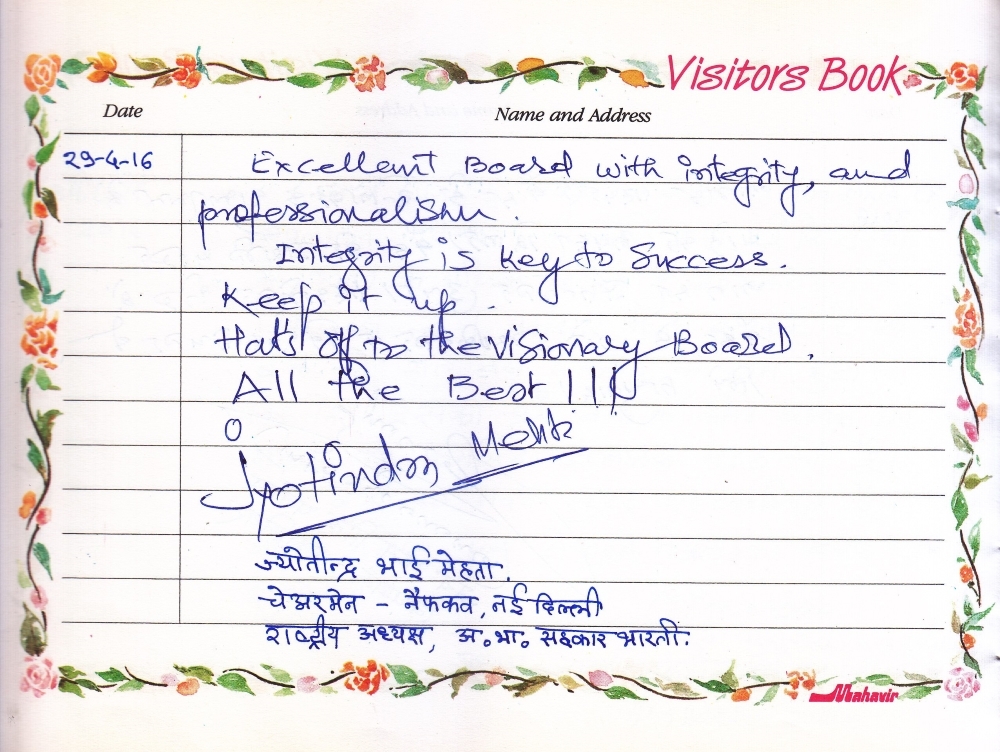 Visitors Book
Date Name and Address
29-4-16 Excellent Board with integrity, and
professionalism.
Integrity is key to Success.
Keep it up.
Hats off to the visionary Board.
All the Best !!!
Jyotindra Mehta
ज्योतीन्द्र भाई मेहता.
चेअरमेन - नैफकब, नई दिल्ली
राष्ट्रीय अध्यक्ष, अ.भा. सहकार भारती.
Mahavir